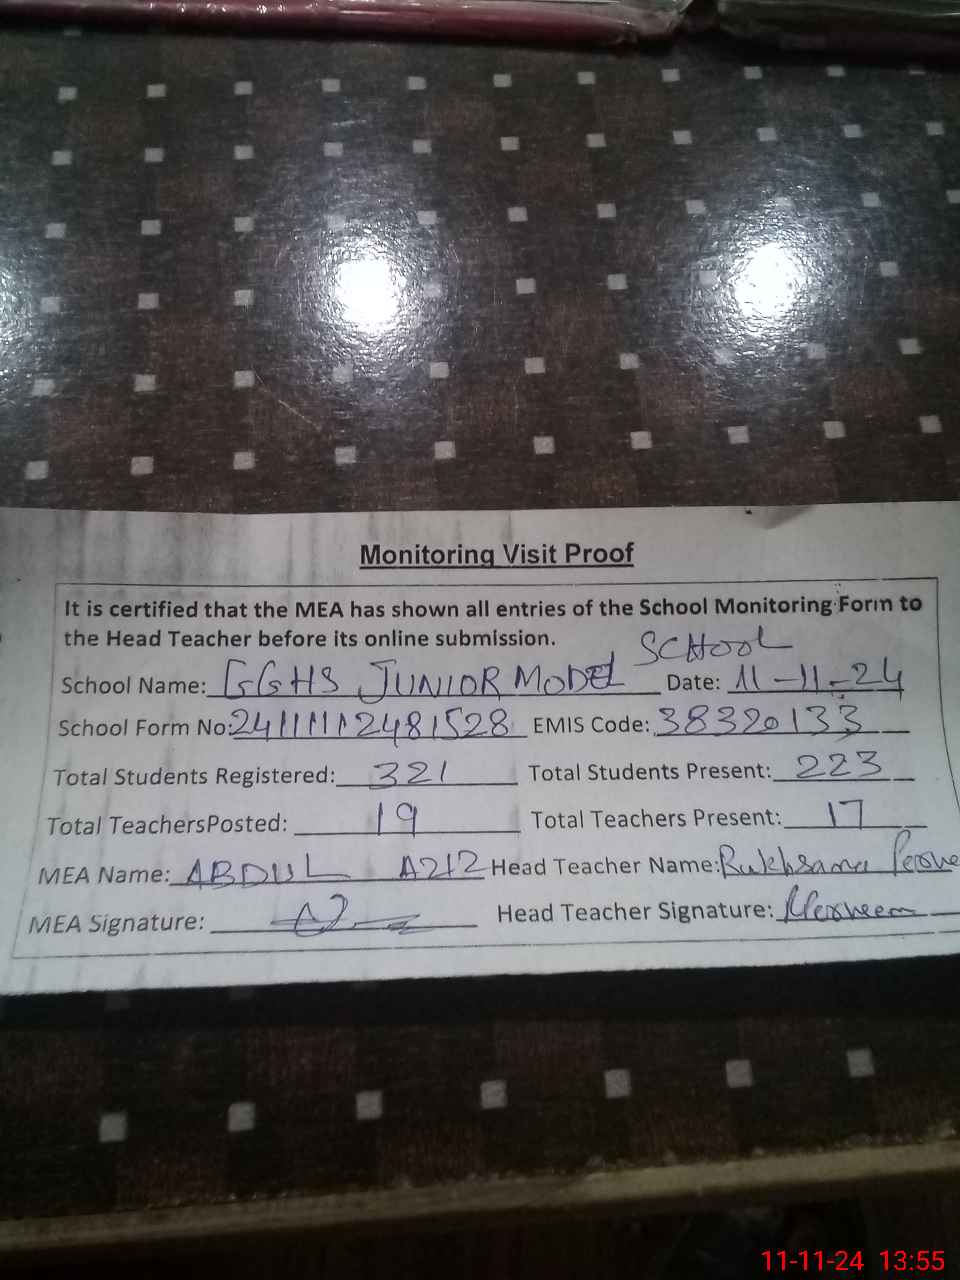 Monitoring Visit Proof
It is certified that the MEA has shown all entries of the School Monitoring Form to
the Head Teacher before its online submission.
School Name: GGHS JUNIOR MODEL SCHOOL Date: 11-11-24
School Form No: 24111112481528 EMIS Code: 38320133
Total Students Registered: 321 Total Students Present: 223
Total TeachersPosted: 19 Total Teachers Present: 17
MEA Name: ABDUL AZIZ Head Teacher Name: Rukhsana
MEA Signature: Head Teacher Signature:
11-11-24 13:55